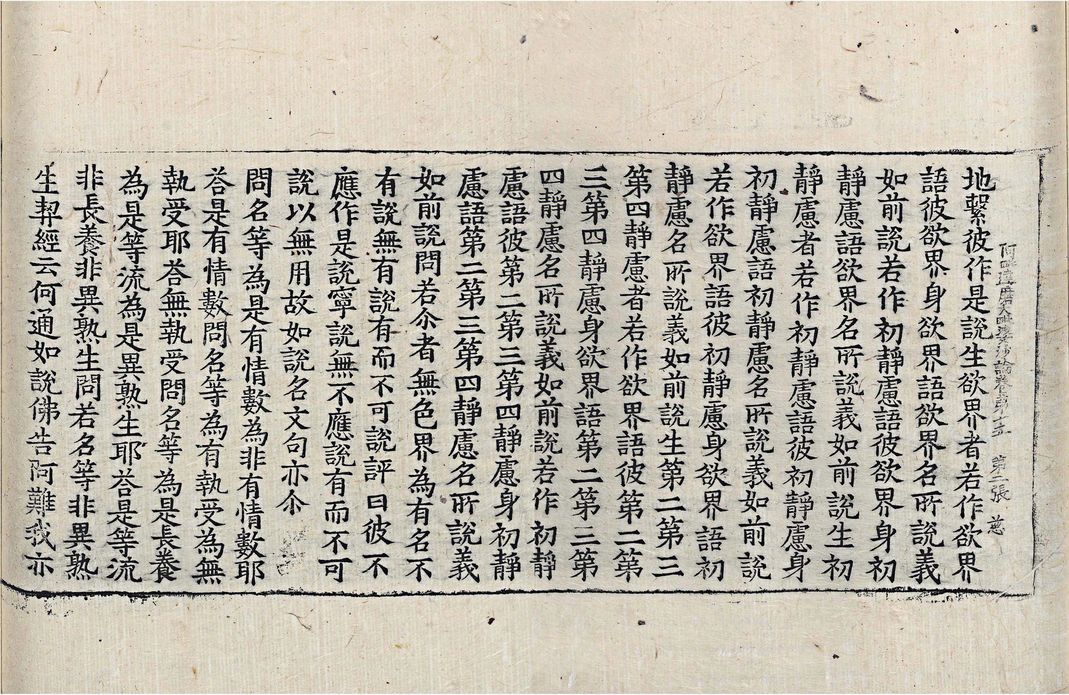 阿毗達磨大毗婆沙論卷第十五 第二張 慈
地繫彼作是說生欲界者若作欲界
語彼欲界身欲界語欲界名所說義
如前說若作初靜慮語彼欲界身初
靜慮語欲界名所說義如前說生初
靜慮者若作初靜慮語彼初靜慮身
初靜慮語初靜慮名所說義如前說
若作欲界語彼初靜慮身欲界語初
靜慮名所說義如前說生第二第三
第四靜慮者若作欲界語彼第二第
三第四靜慮身欲界語第二第三第
四靜慮名所說義如前說若作初靜
慮語彼第二第三第四靜慮身初靜
慮語第二第三第四靜慮名所說義
如前說問若尒者無色界為有名不
有說無有說有而不可說評曰彼不
應作是說寧說無不應說有而不可
說以無用故如說名文句亦尒
問名等為是有情數為非有情數耶
荅是有情數問名等為有執受為無
執受耶荅無執受問名等為是長養
為是等流為是異熟生耶荅是等流
非長養非異熟生問若名等非異熟
生契經云何通如說佛告阿難我亦